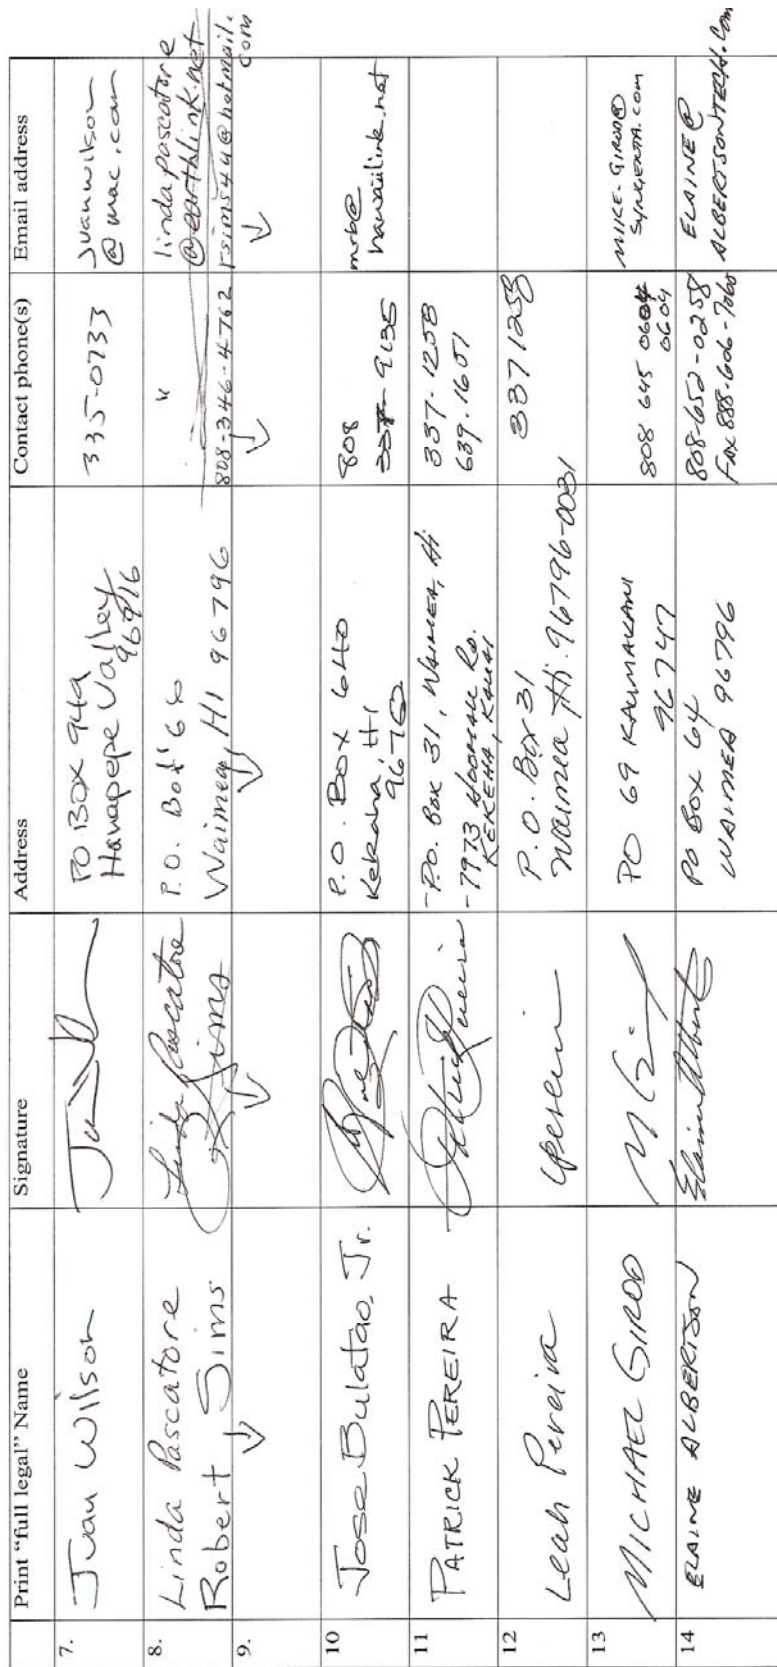 Print "full legal" Name
Signature
Address
Contact phone(s)
Email address
7.
Juan Wilson
PO BOX 949
Hanapepe Valley
96716
335-0733
juanwilson
@mac.com
8.
Linda Pascatore
Linda Pascatore
P.O. Box
linda pascatore
@earthlink.net
Robert Sims
Sims
Waimea, HI 96796
808-346-4762
rsims44@hotmail.
com
9.
10
Jose Bulatao, Jr.
P.O. Box 640
Kekaha HI
808
9135
mrb@
hawaiilink.net
11
PATRICK PEREIRA
-P.O. Box 31, WAIMEA, Hi
-7973 Rd.
KEKEHA, KAUAI
337-1258
639-1601
12
Leah Pereira
P.O. Box 31
Waimea Hi. 96796-0031
3371258
13
MICHAEL GIROD
M
PO 69 KAUMAKANI
96747
808 645
0604
MIKE.GIROD@
SYNGENTA.COM
14
ELAINE ALBERTSON
PO BOX 64
WAIMEA 96796
808-652-0258
FAX 888-606-7060
ELAINE@
ALBERTSONTECH.COM